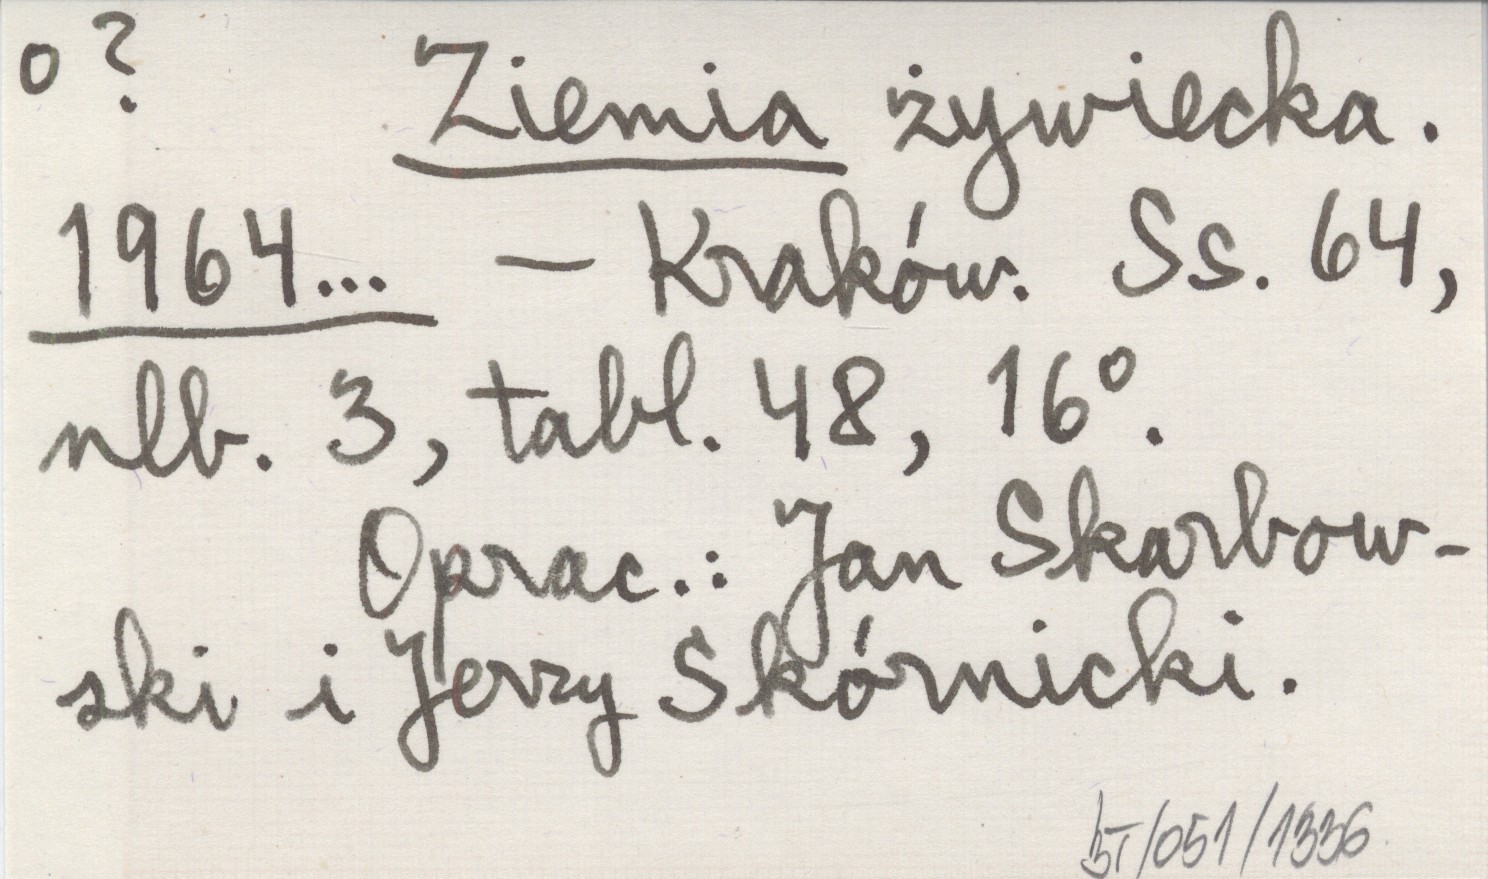 o ? Ziemia żywiecka.
1964... – Kraków. Ss. 64,
nlb. 3, tabl. 48, 16°.
Oprac.: Jan Skarbow-
ski i Jerzy Skórnicki.
/051/1336